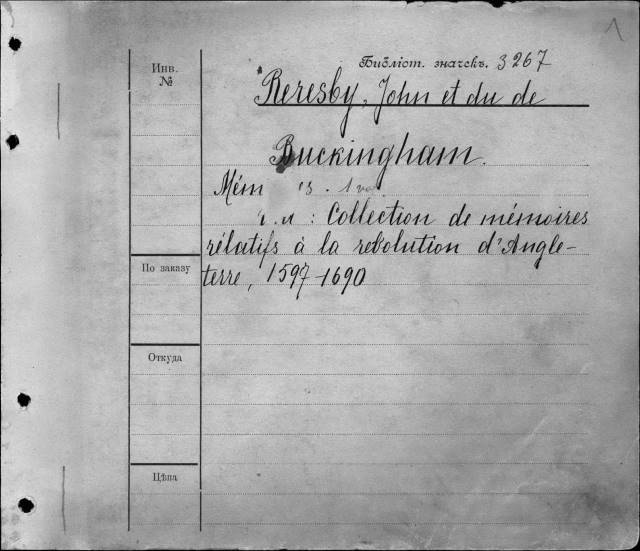 1
Библіот. значекъ. 3267
Инв.
№
Reresby, John et du de
Buckingham.
Mém
: Collection de mémoires
rélatifs à la revolution d'Angle-
По заказу
terre, 1597-1690
Откуда
Цѣна